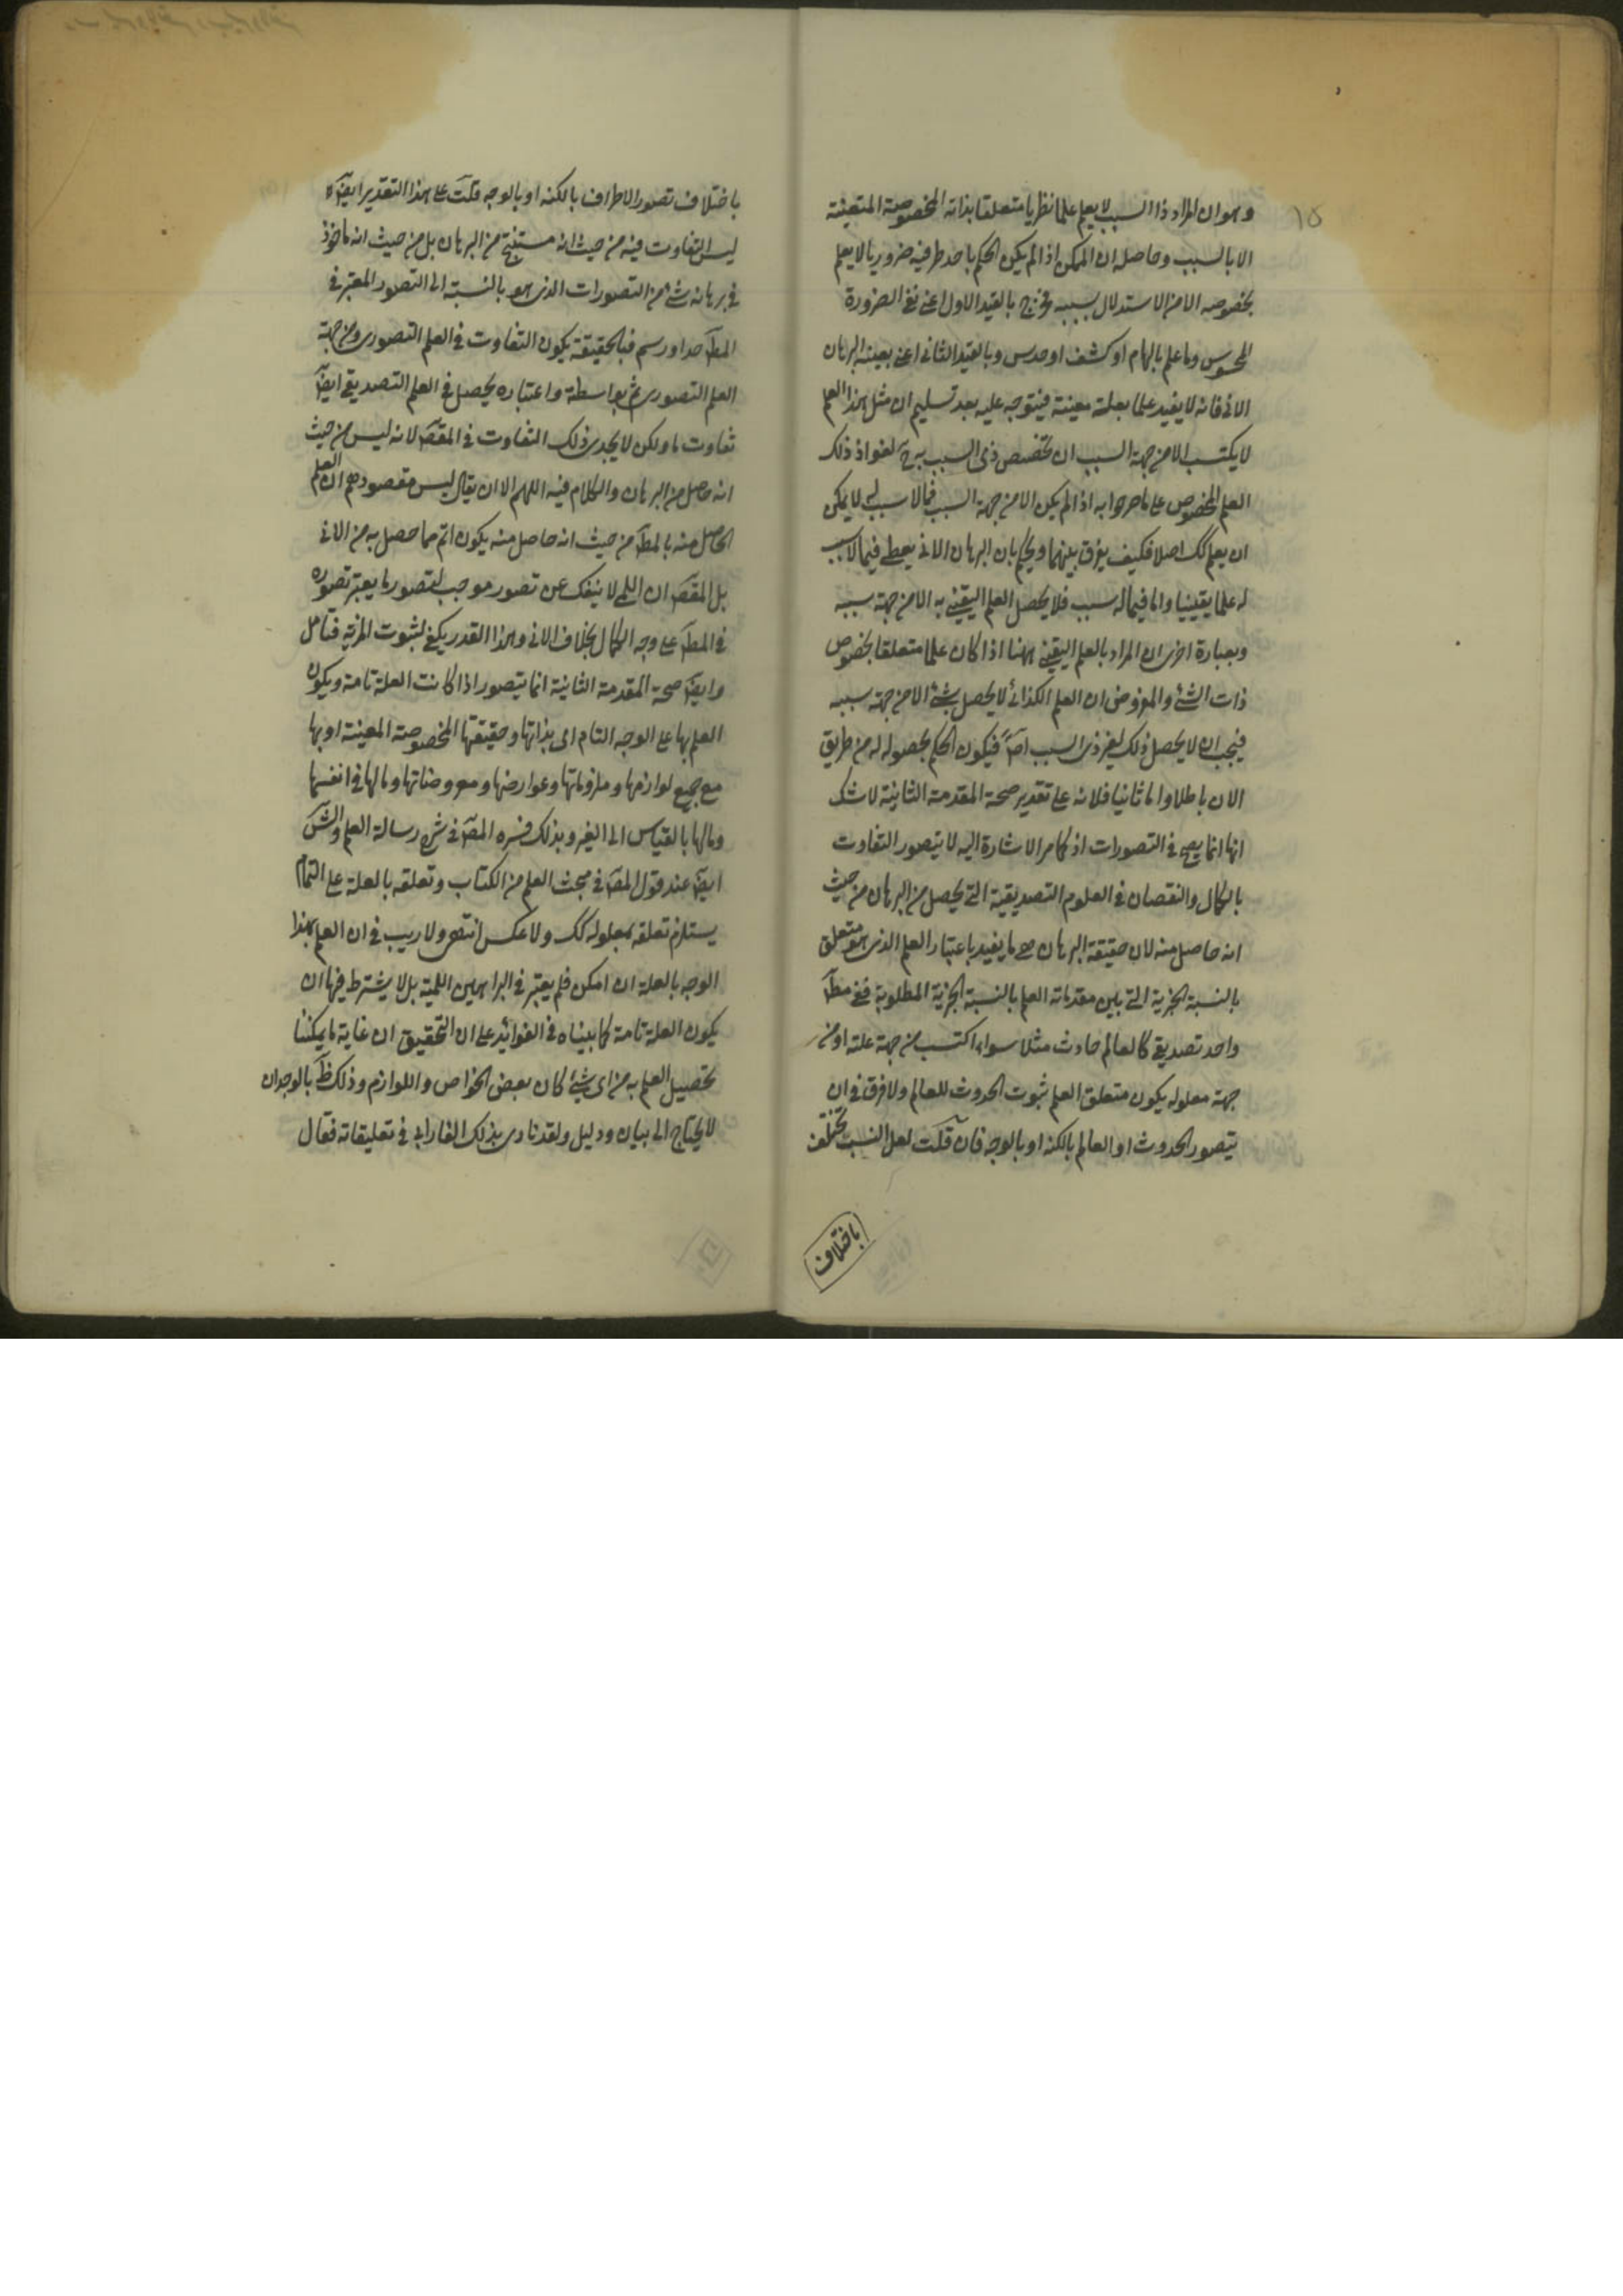 ١٥
وهو ان المراد ذا السبب لا يعلم علما نظريا متعلقا بذاته المخصوصة المتعينة
الا بالسبب وحاصله ان الممكن اذا لم يكن الحكم باحد طرفيه ضروريا لا يعلم
بخصوصه الا من الاستدلال بسببه فخرج بالقيد الاول اعنى نفى الضرورة
المحسوس وما علم بالهام او كشف او حدس وبالقيد الثانى اعنى بعينه البرهان
الانى فانه لا يفيد علما بعلة معينة فيتوجه عليه بعد تسليم ان مثل هذا العلم
لا يكتسب الا من جهة السبب ان تخصيص ذى السبب به ح لغو اذ ذلك
العلم المخصوص على ما صرحوا به اذا لم يكن الا من جهة السبب فما لا سبب له لا يمكن
ان يعلم كك اصلا فكيف يفرق بينهما ويحكم بان البرهان الانى يعطى فيما لا سبب
له علما يقينيا واما فيما له سبب فلا يحصل العلم اليقينى به الا من جهة سببه
وبعبارة اخرى ان المراد بالعلم اليقينى ههنا اذا كان علما متعلقا بخصوص
ذات الشئ والمفروض ان العلم الكذائى لا يحصل بشئ الا من جهة سببه
فيجب ان لا يحصل ذلك لغير ذى السبب اصلا فيكون الحكم بحصوله له من طريق
الان باطلا واما ثانيا فلانه على تقدير صحة المقدمة الثانية لا شك
انها انما يصح فى التصورات اذ كما مر الاشارة اليه لا يتصور التفاوت
بالكمال والنقصان فى العلوم التصديقية التى يحصل من البرهان من حيث
انه حاصل منه لان حقيقة البرهان هى ما يفيد باعتبار العلم الذى هو متعلق
بالنسبة الجزية التى بين مقدماته العلم بالنسبة الجزية المطلوبة ففى مط
واحد تصديقى كالعالم حادث مثلا سواء اكتسب من جهة علته او من
جهة معلوله يكون متعلق العلم ثبوت الحدوث للعالم ولا فرق فى ان
يتصور الحدوث او العالم بالكنه او بالوجه فان قلت لعل النسب تختلف
باختلاف
باختلاف تصور الاطراف بالكنه او بالوجه قلت على هذا التقدير ايض
ليس التفاوت فيه من حيث انه مستنتج من البرهان بل من حيث انه ماخوذ
فى برهانه شئ من التصورات الذى هو بالنسبة الى التصور المعتبر فى
المط حد او رسم فبالحقيقة يكون التفاوت فى العلم التصورى ومن جهة
العلم التصورى ثم بواسطة واعتباره يحصل فى العلم التصديقى ايض
تفاوت ما ولكن لا يجدى ذلك التفاوت فى المقص لانه ليس من حيث
انه حاصل من البرهان والكلام فيه اللهم الا ان يقال ليس مقصودهم ان العلم
الحاصل منه بالمط من حيث انه حاصل منه يكون اتم مما حصل به من الانى
بل المقص ان اللمى لا ينفك عن تصور موجب لتصور ما يعتبر تصوره
فى المط على وجه الكمال بخلاف الانى وهذا القدر يكفى لثبوت المزية فتامل
وايض صحة المقدمة الثانية انما يتصور اذا كانت العلة تامة ويكون
العلم بها على الوجه التام اى بذاتها وحقيقتها المخصوصة المعينة او بها
مع جميع لوازمها وملزوماتها وعوارضها ومعروضاتها وما لها فى انفسها
وما لها بالقياس الى الغير وبذلك فسره المص فى شرح رسالة العلم والش
ايض عند قول المص فى مبحث العلم من الكتاب وتعلقه بالعلة على التمام
يستلزم تعلقه بمعلوله كك ولا عكس انتهى ولا ريب فى ان العلم بهذا
الوجه بالعلة ان امكن فلم يعتبر فى البراهين اللمية بل لا يشترط فيها ان
يكون العلة تامة كما بيناه فى الفوائد على ان التحقيق ان غاية ما يمكننا
تحصيل العلم به من اى شئ كان بعض الخواص واللوازم وذلك ظ بالوجدان
لا يحتاج الى بيان ودليل ولقد نادى بذلك الفارابى فى تعليقاته فقال